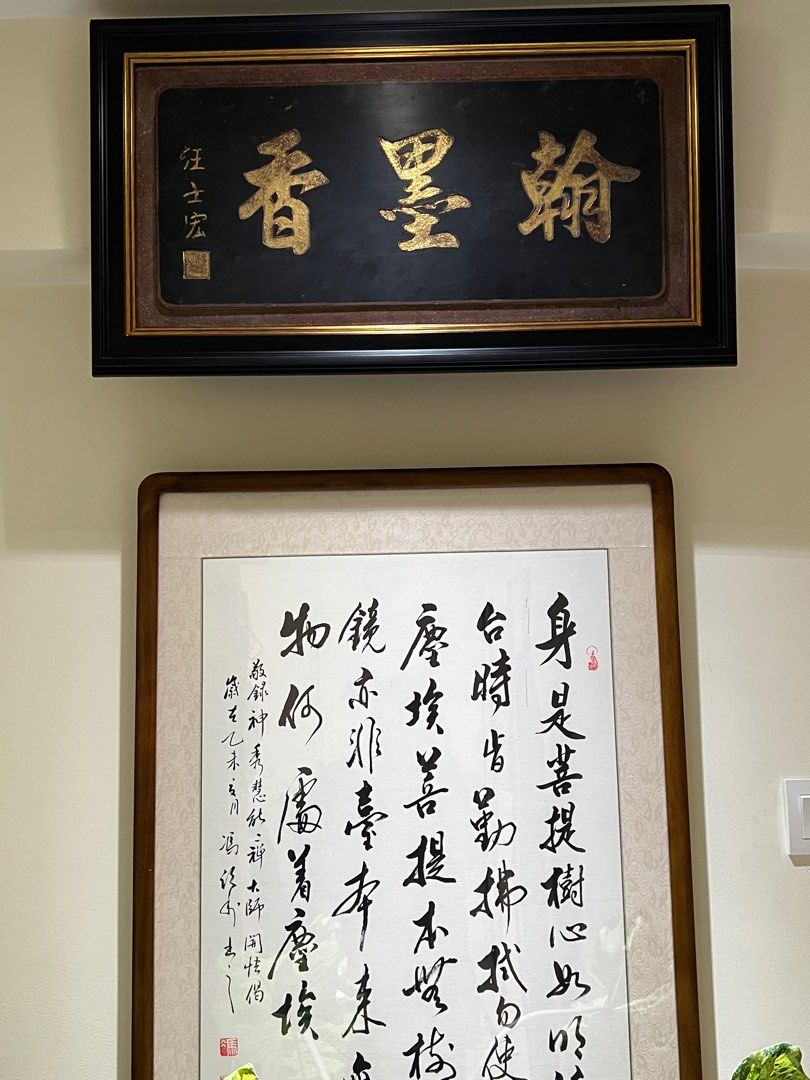 翰墨香
汪士宏
身是菩提樹心如明
台時旹勤拂拭勿使
塵埃菩提本無樹
鏡亦非臺本來
物何處着塵埃
敬錄神秀慧能禪大師開悟偈
歲在乙未月馮書之